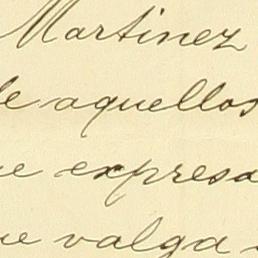 Martinez
de aquellos
que expresa
que valga